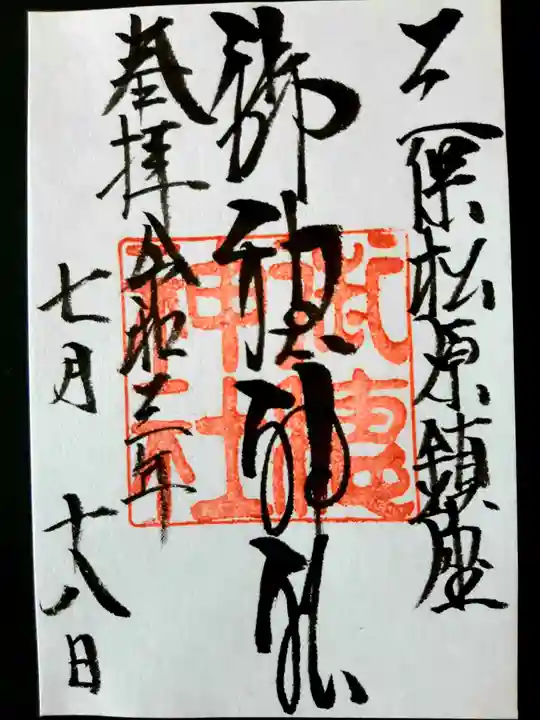 三保松原鎮座
御穂神社
奉拝 令和三年
七月十八日